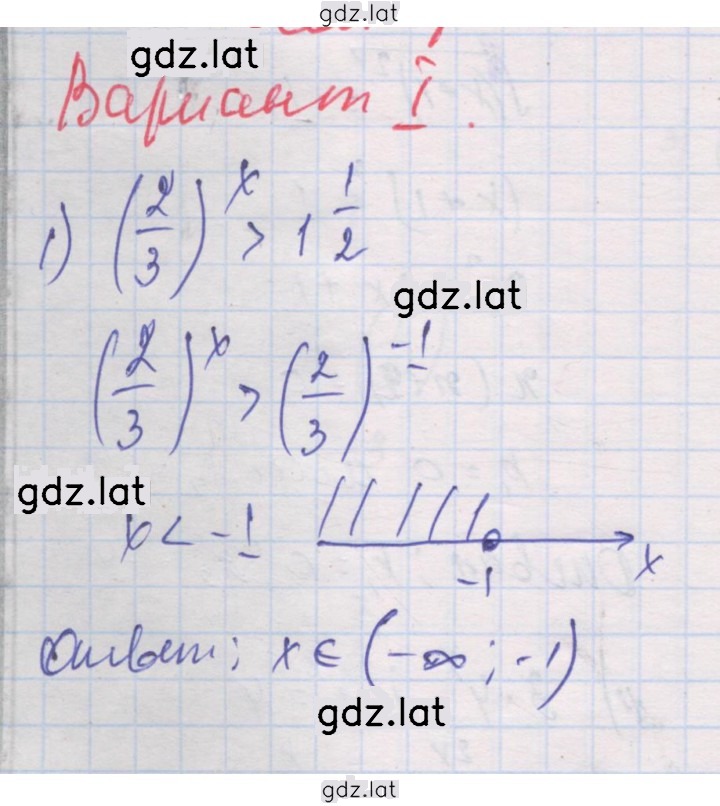 gdz.lat
gdz.lat
Вариант I.
1) (2/3)^x > 1 1/2
gdz.lat
(2/3)^x > (2/3)^-1
gdz.lat
x < -1
-1 x
Ответ: x ∈ (-∞; -1)
gdz.lat
gdz.lat